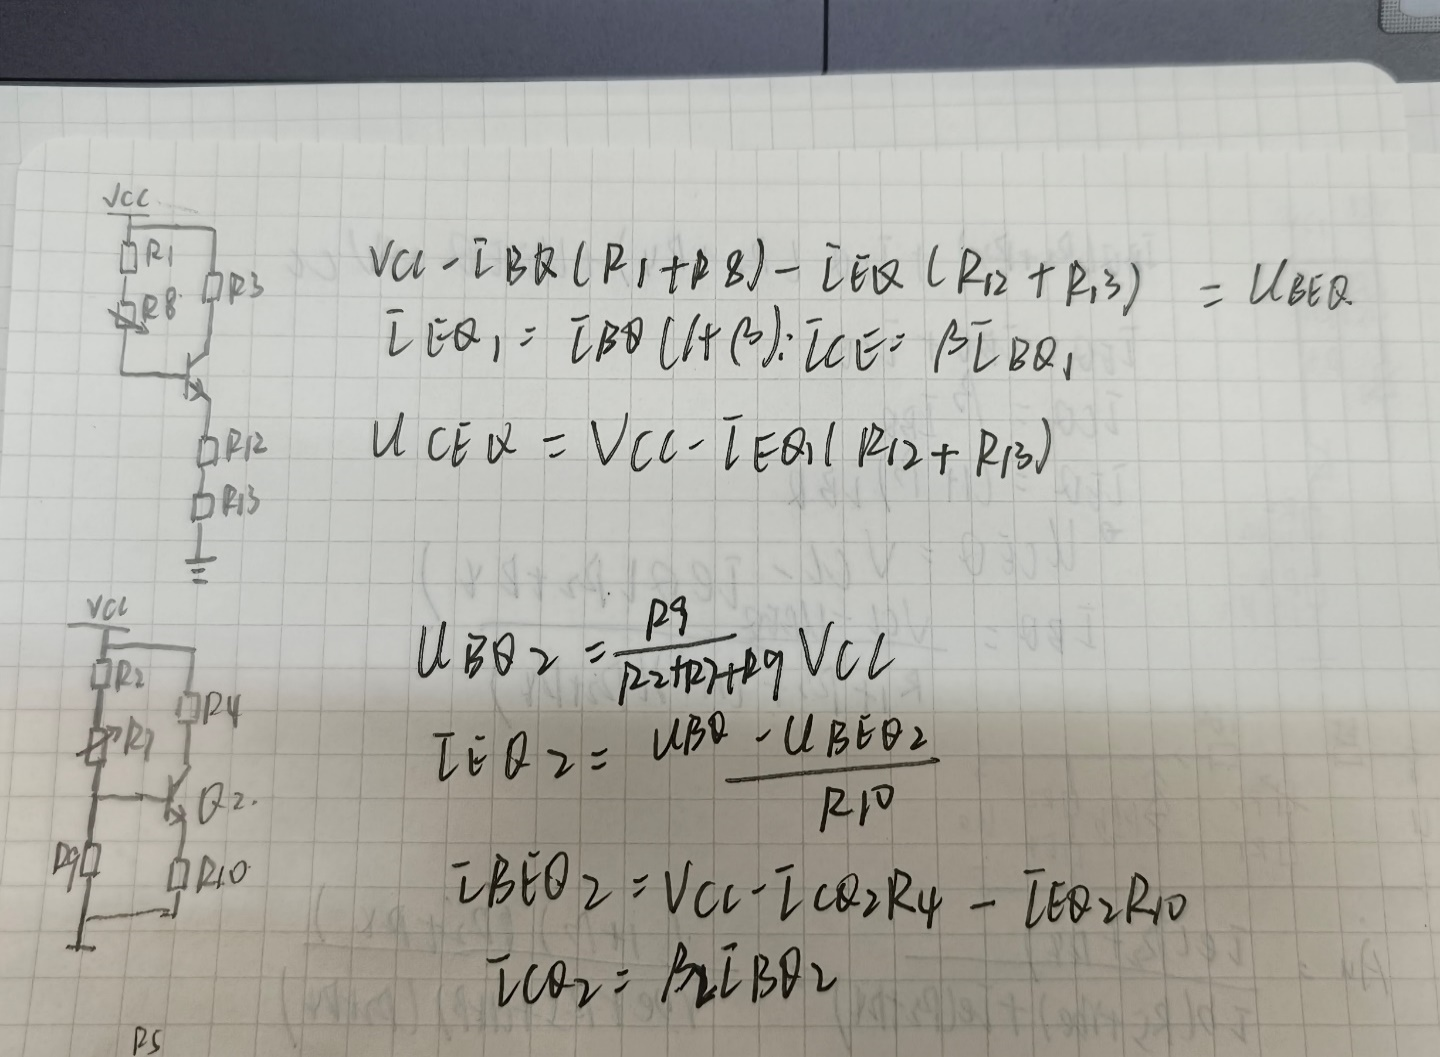 VCC
R1
R8
R3
R12
R13
VCC - IBQ (R1+R8) - IEQ (R12 + R13) = UBEQ
IEQ1 = IBQ (1+β); ICE = βIBQ1
UCEQ = VCC - IEQ1 (R12 + R13)
VCC
R2
R7
R4
Q2.
R9
R10
UBQ2 = R9 / (R2+R7+R9) VCC
IEQ2 = (UBQ - UBEQ2) / R10
IBEQ2 = VCC - ICQ2R4 - IEQ2R10
ICQ2 = β2IBQ2
R5